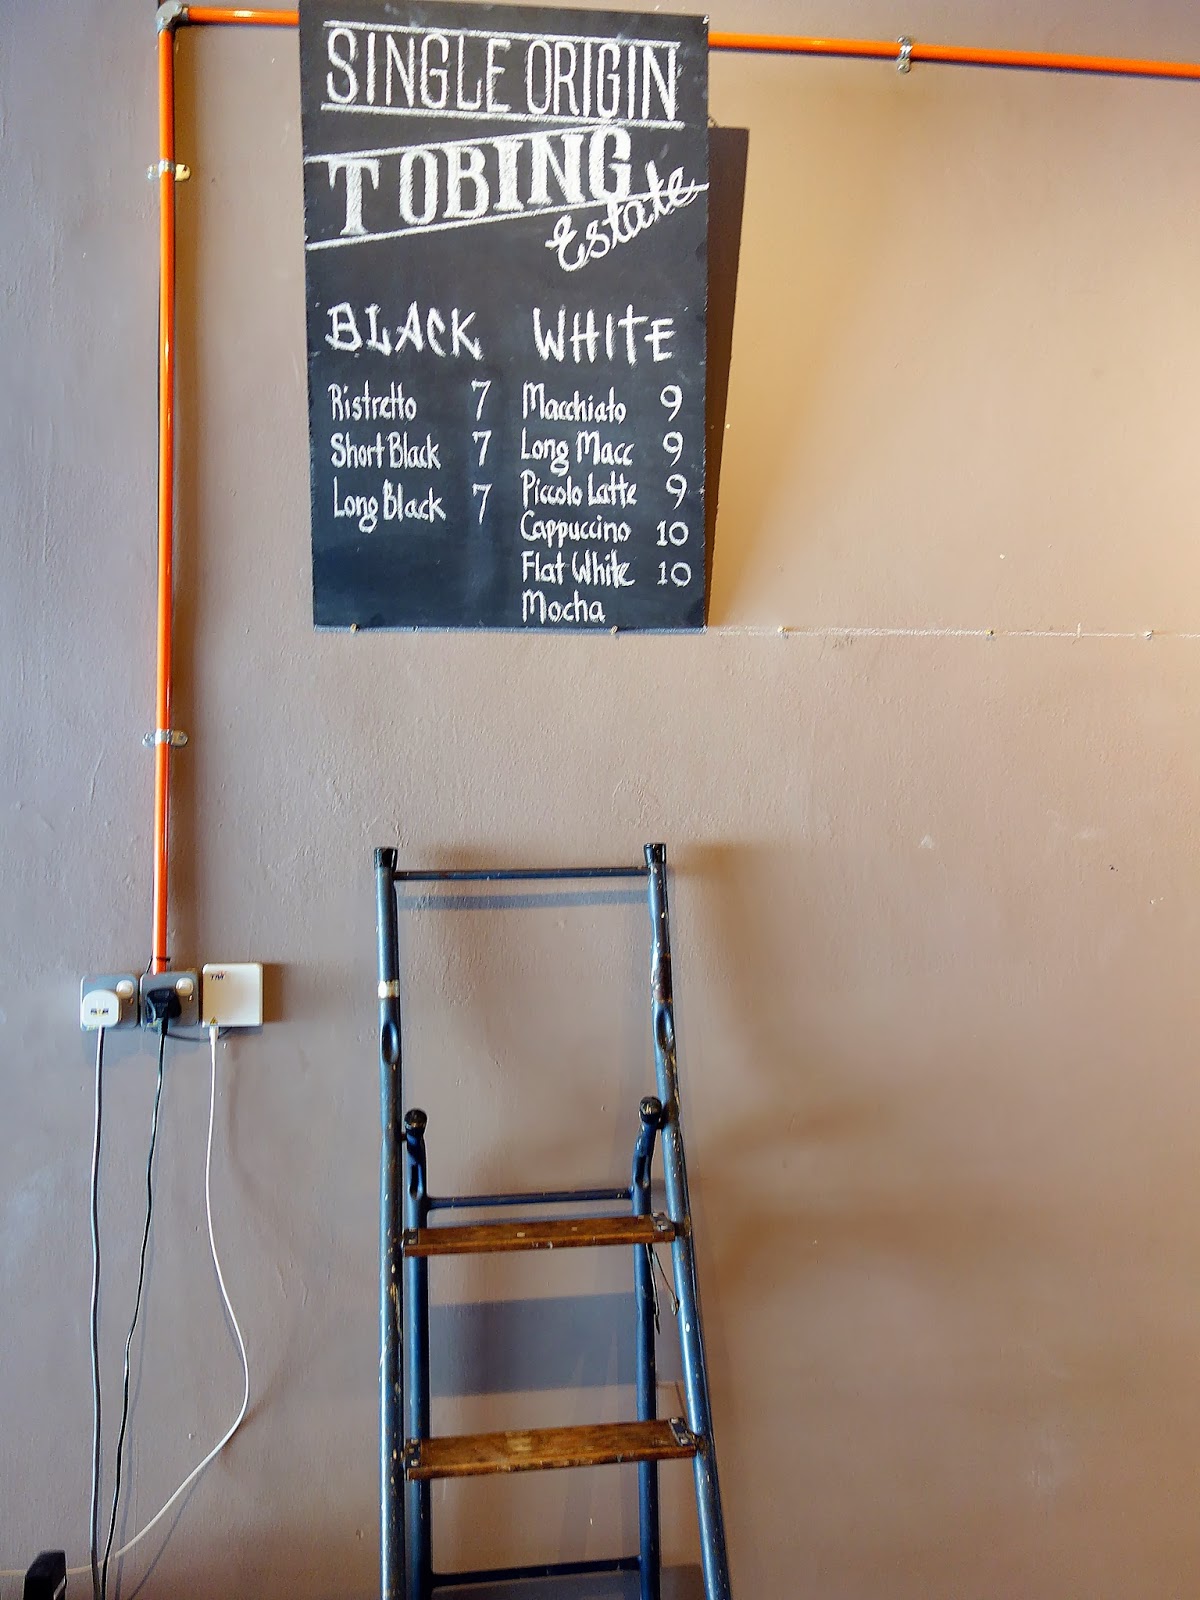 SINGLE ORIGIN
TOBING
Estate
BLACK
Ristretto 7
Short Black 7
Long Black 7
WHITE
Macchiato 9
Long Macc 9
Piccolo Latte 9
Cappuccino 10
Flat White 10
Mocha